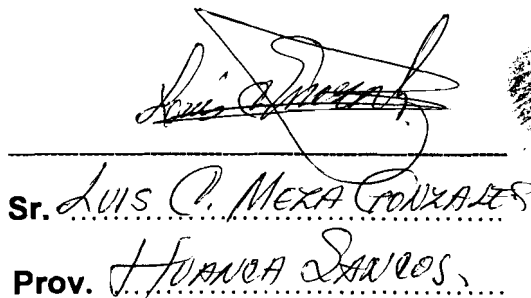 Sr. LUIS C. MEZA GONZALES
Prov. HUANCA SANCOS.